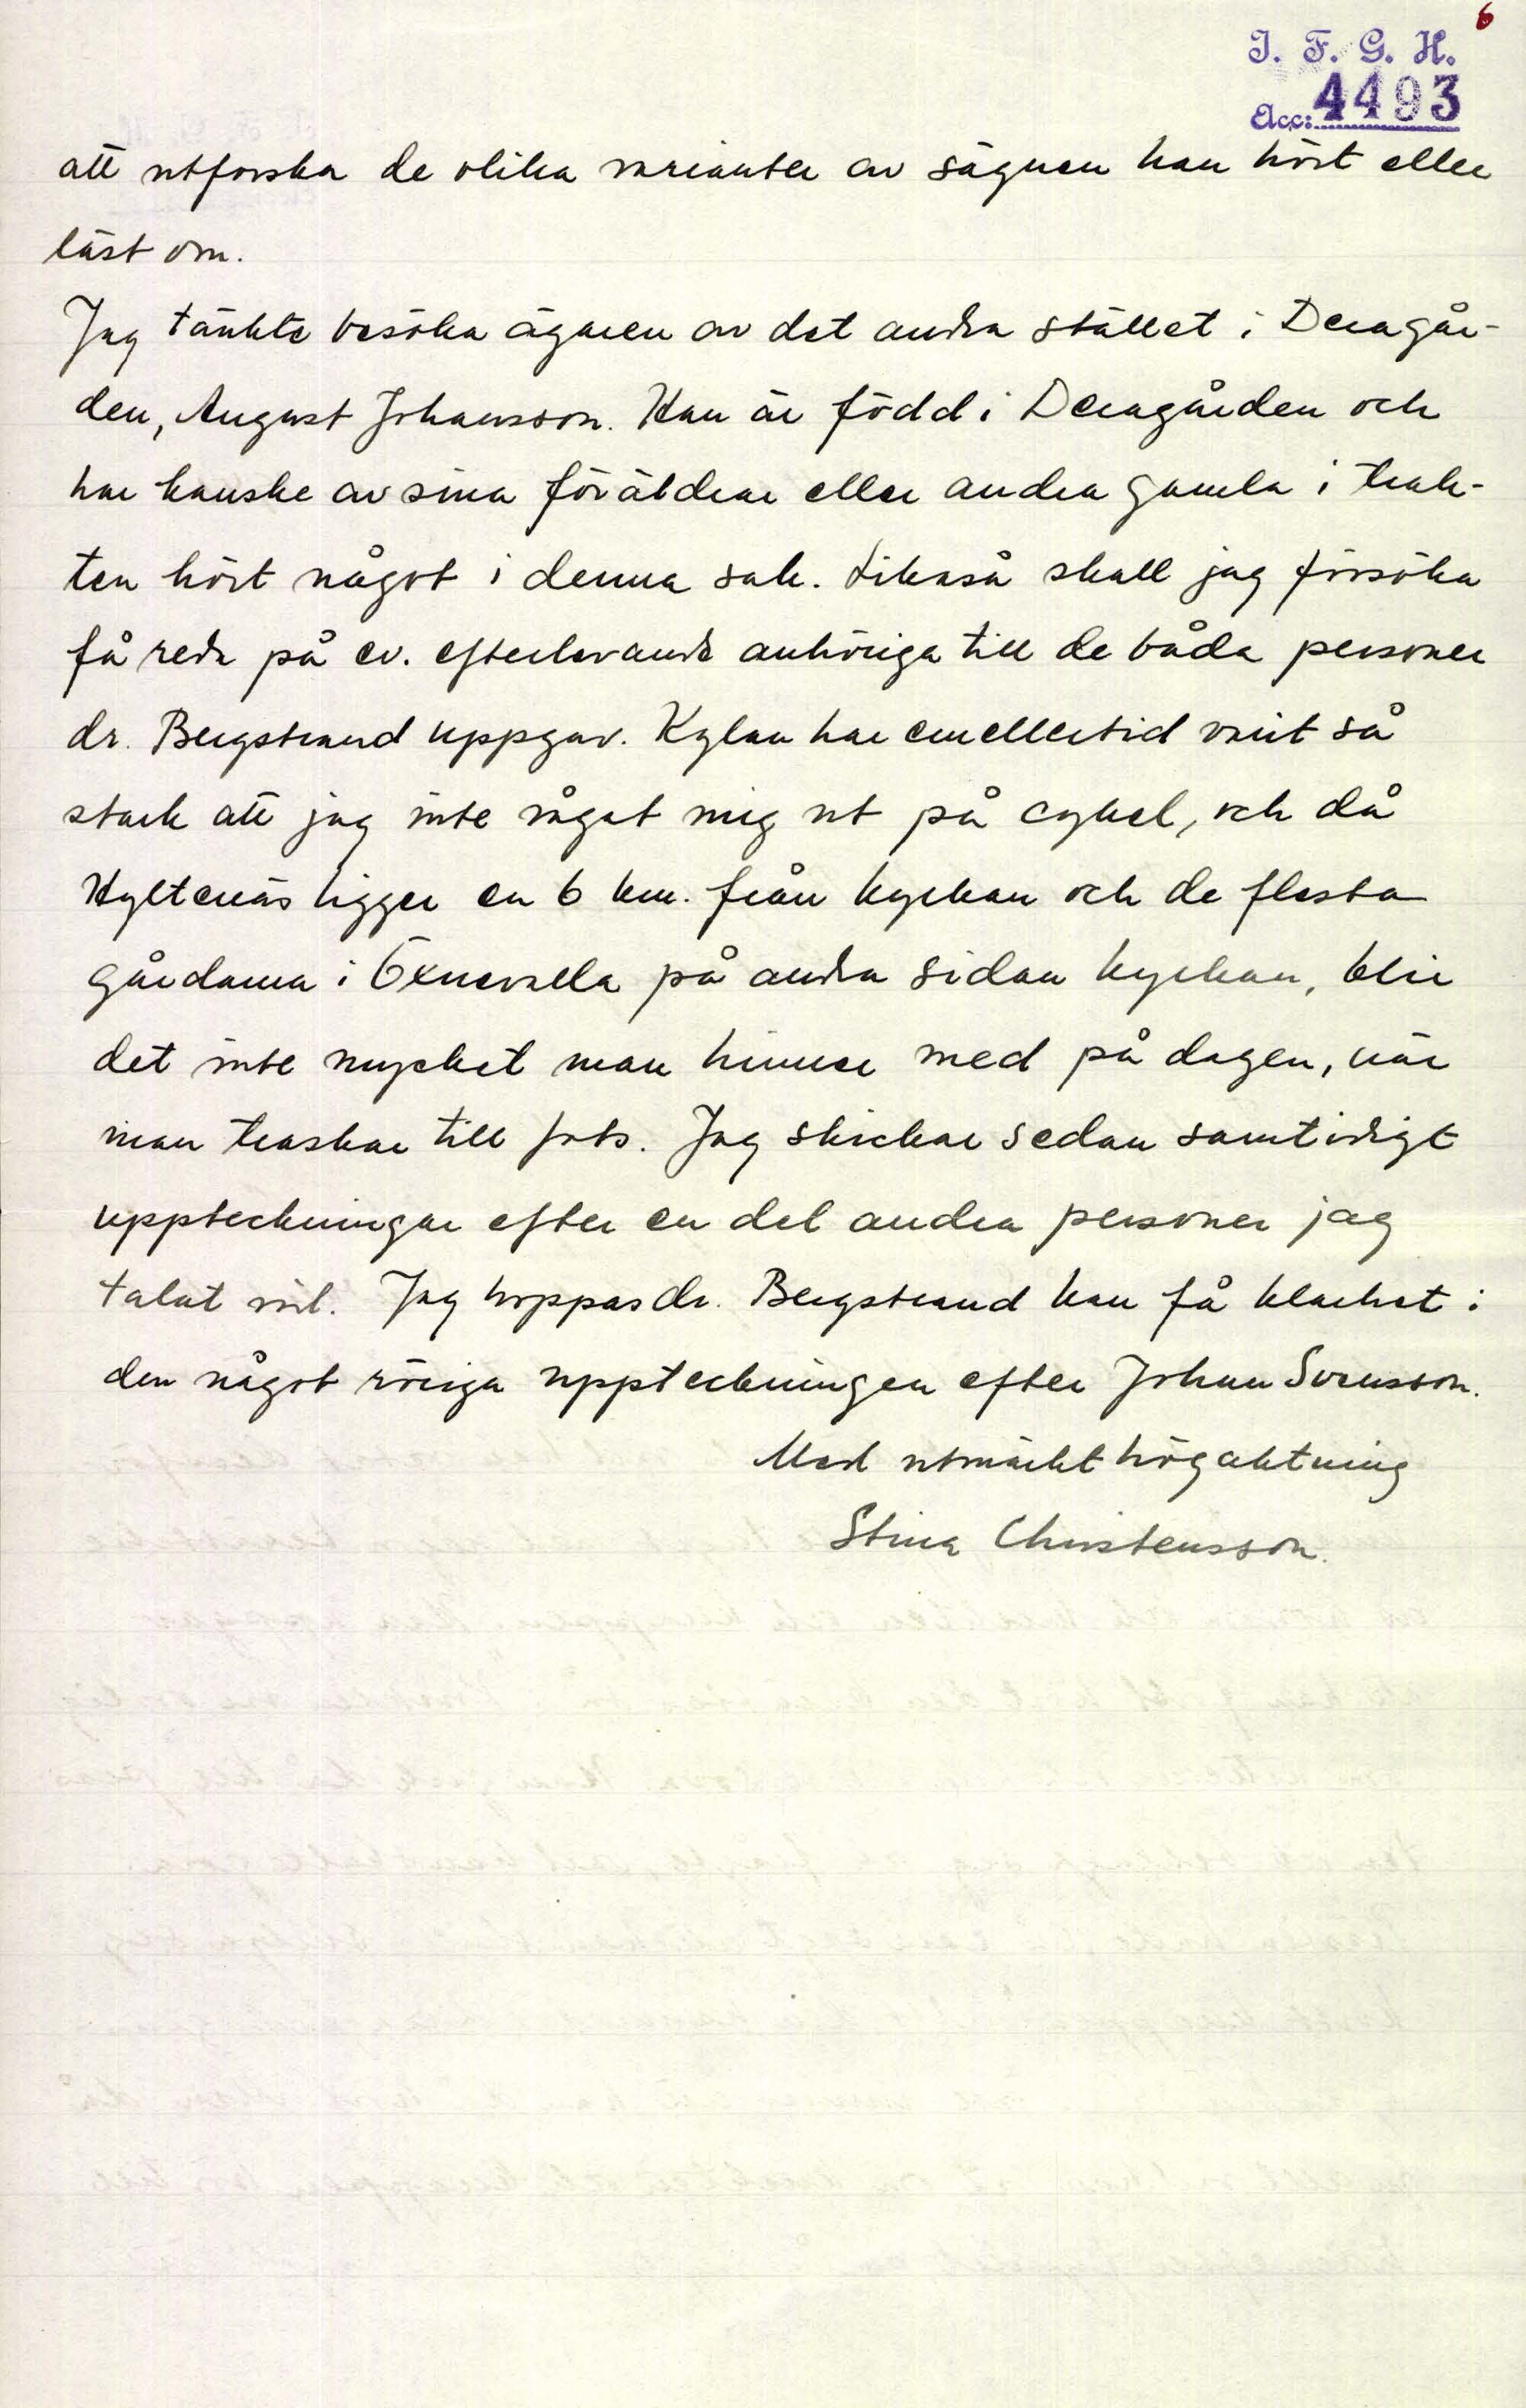 6
I. F. G. H.
Acc: 4493
att utforska de olika varianter av sägnen han hört eller
läst om.
Jag tänkte besöka ägaren av det andra stället i Deragår-
den, August Johansson. Han är född i Deragården och
har kanske av sina föräldrar eller andra gamla i trak-
ten hört något i denna sak. Likaså skall jag försöka
få reda på ev. efterlevande anhöriga till de båda personer
dr. Bergstrand uppgav. Kylan har emellertid varit så
stark att jag inte vågat mig ut på cykel, och då
Hyltenäs ligger en 6 km. från kyrkan och de flesta
gårdarna i Öxnevalla på andra sidan kyrkan, blir
det inte mycket man hinner med på dagen, när
man traskar till fots. Jag skickar sedan samtidigt
uppteckningar efter en del andra personer jag
talat vid. Jag hoppas dr. Bergstrand kan få klarhet i
den något röriga uppteckningen efter Johan Svensson.
Med utmärkt högaktning
Stina Christensson.